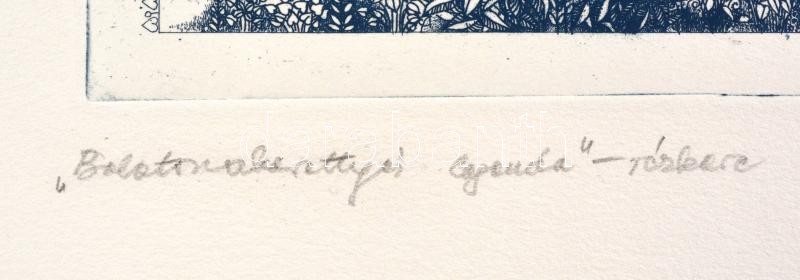 „Balatonakarattyai legenda" – rézkarc